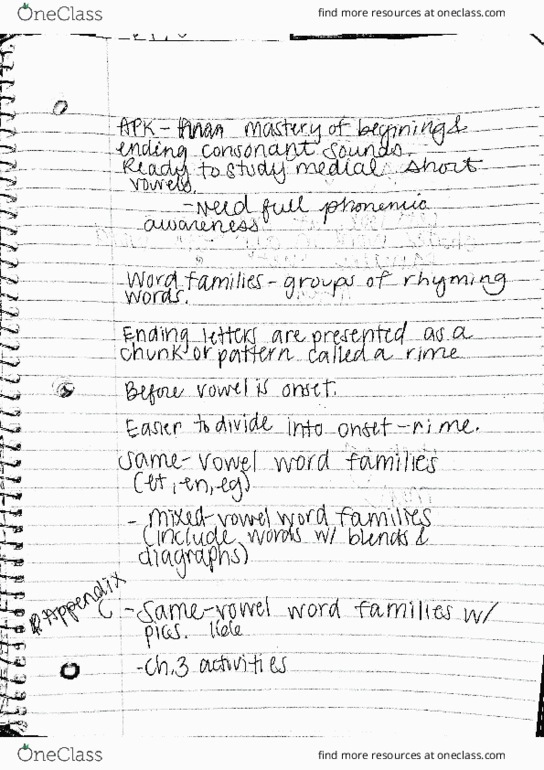 OneClass
find more resources at oneclass.com
APK - mastery of beginning &
ending consonant sounds.
Ready to study medial short
vowels.
- Need full phonemic
awareness
Word families - groups of rhyming
words.
Ending letters are presented as a
chunk or pattern called a rime
Before vowel is onset.
Easier to divide into onset-rime.
Same-vowel word families
(et, en, eg)
- mixed-vowel word families
(include words w/ blends &
diagraphs)
Appendix
C - Same-vowel word families w/
pics.
- Ch. 3 activities
OneClass
find more resources at oneclass.com